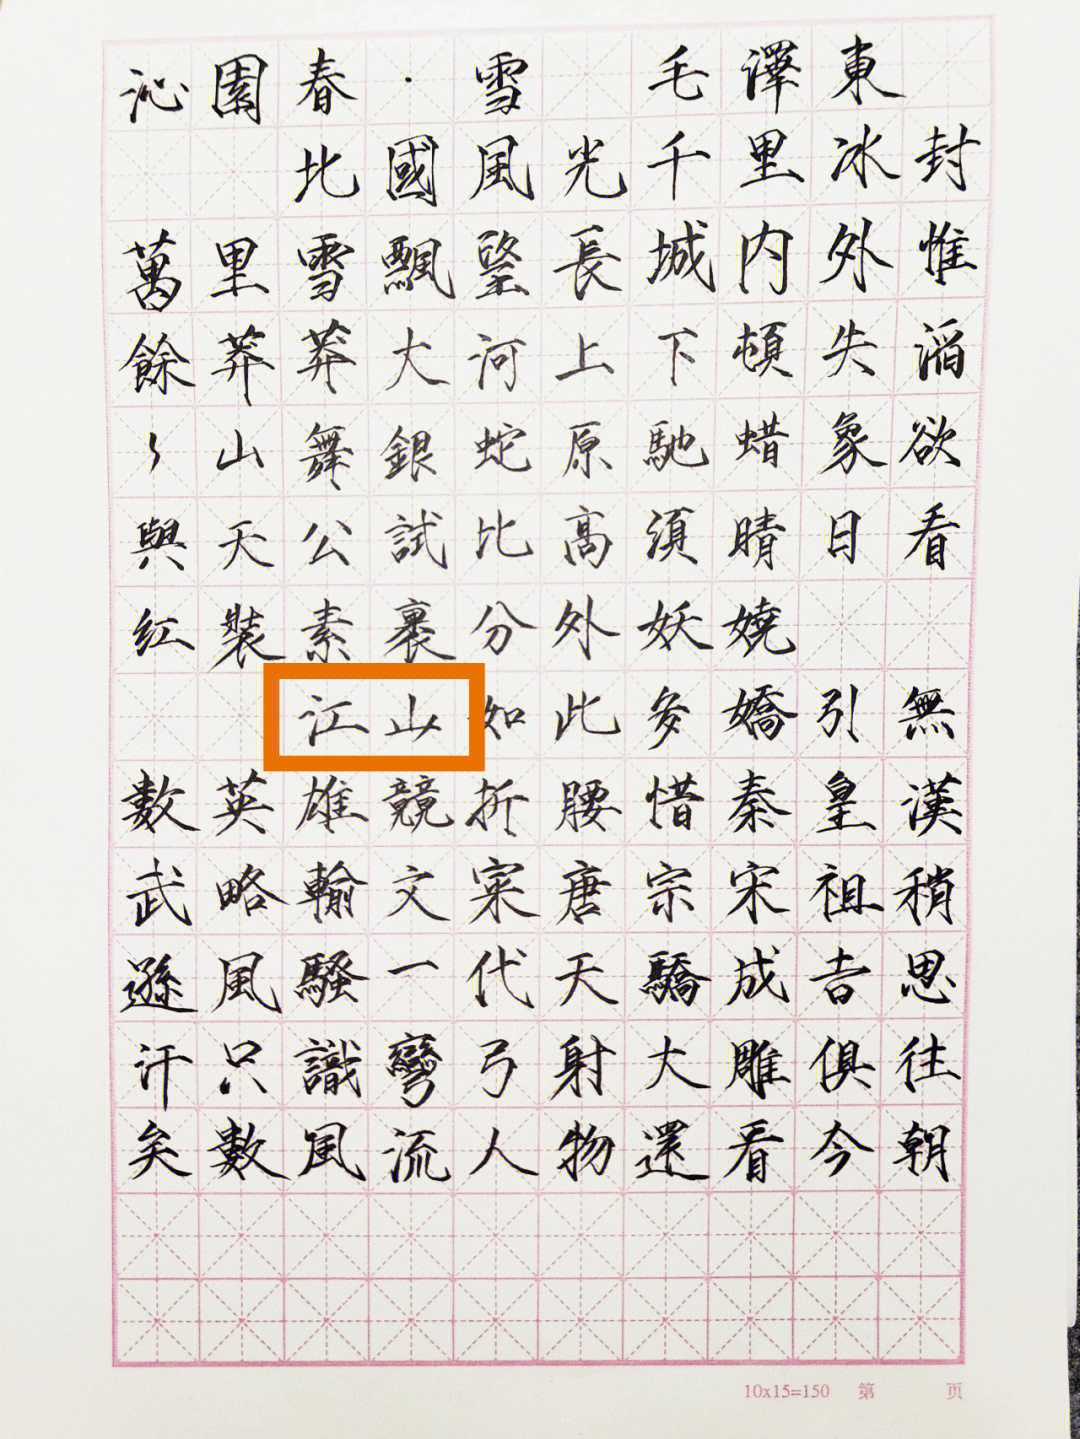 沁園春·雪 毛澤東
北國風光千里冰封
萬里雪飄望長城内外惟
餘莽莽大河上下頓失滔
〻山舞銀蛇原馳蜡象欲
與天公試比高須晴日看
红裝素裹分外妖嬈
江山如此多嬌引無
數英雄競折腰惜秦皇漢
武略輸文寀唐宗宋祖稍
遜風騷一代天驕成吉思
汗只識彎弓射大雕俱往
矣數風流人物還看今朝
10x15=150 第 页